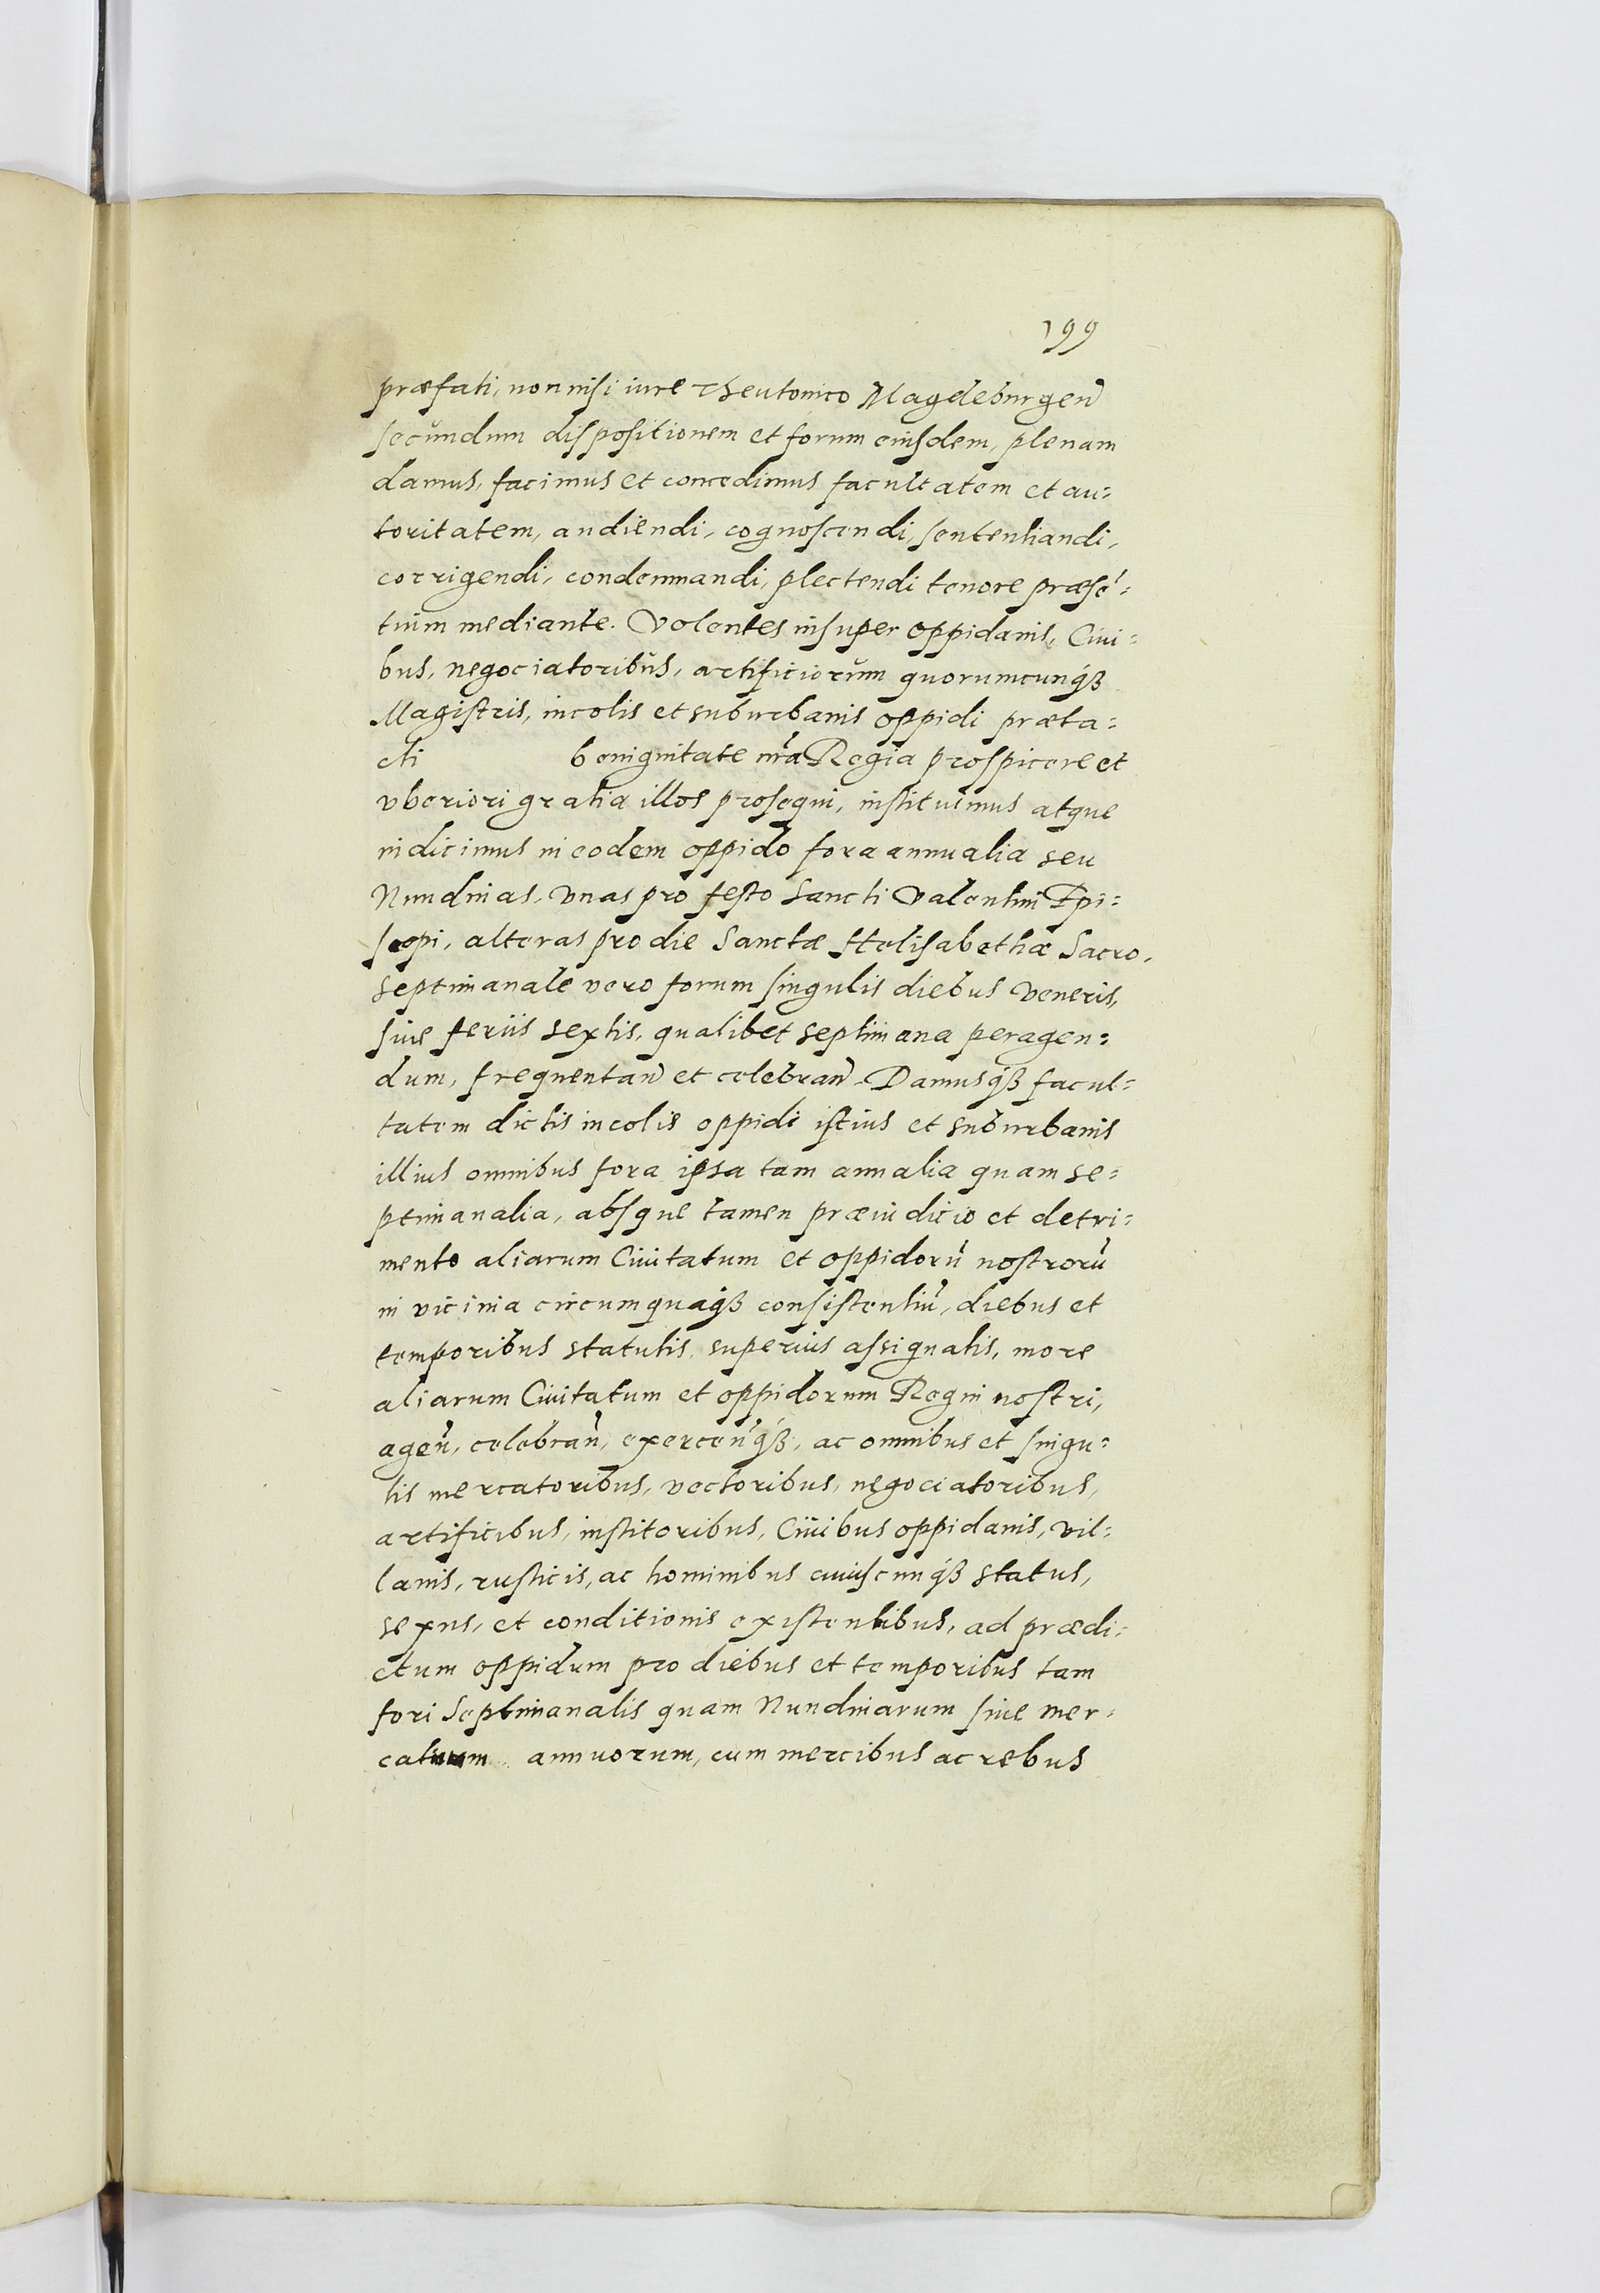 199
præfati, non nisi iure Theutonico Magdeburgeñ
secundum dispositionem et forum eiusdem, plenam
damus, facimus et concedimus facultatem et au=
toritatem, audiendi, cognoscendi, sententiandi,
corrigendi, condemnandi, plectendi tenore præsē=
tium mediante. Volentes insuper oppidanis, Ciui=
bus, negociatoribus, artificiorum quorumcunqꝫ
Magistris, incolis et suburbanis oppidi præta=
cti benignitate nr̃a Regia prospicere et
vberiori gratia illos prosequi, instituimus atque
indicimus in eodem oppido fora annualia seu
Nundinas, vnas pro festo Sancti Valentini Epi=
scopi, alteras pro die Sanctæ Helisabethæ Sacro,
septimanale vero forum singulis diebus Veneris,
siue feriis sextis, qualibet septimana peragen=
dum, frequentañ et celebrañ. Damusqꝫ facul=
tatem dictis incolis oppidi istius et suburbanis
illius omnibus fora ipsa tam annalia quam se=
ptimanalia, absque tamen præiudicio et detri=
mento aliarum Ciuitatum et oppidorū nostrorū
in vicinia circumquaqꝫ consistentiū, diebus et
temporibus statutis superius assignatis, more
aliarum Ciuitatum et oppidorum Regni nostri,
ageñ, celebrañ, exerceñqꝫ, ac omnibus et singu=
lis mercatoribus, vectoribus, negociatoribus,
artificibus, institoribus, Ciuibus oppidanis, vil=
lanis, rusticis, ac hominibus cuiuscunqꝫ status,
sexus, et conditionis existentibus, ad prædi=
ctum oppidum pro diebus et temporibus tam
fori Septimanalis quam Nundinarum siue mer=
catuum annuorum, cum mercibus ac rebus